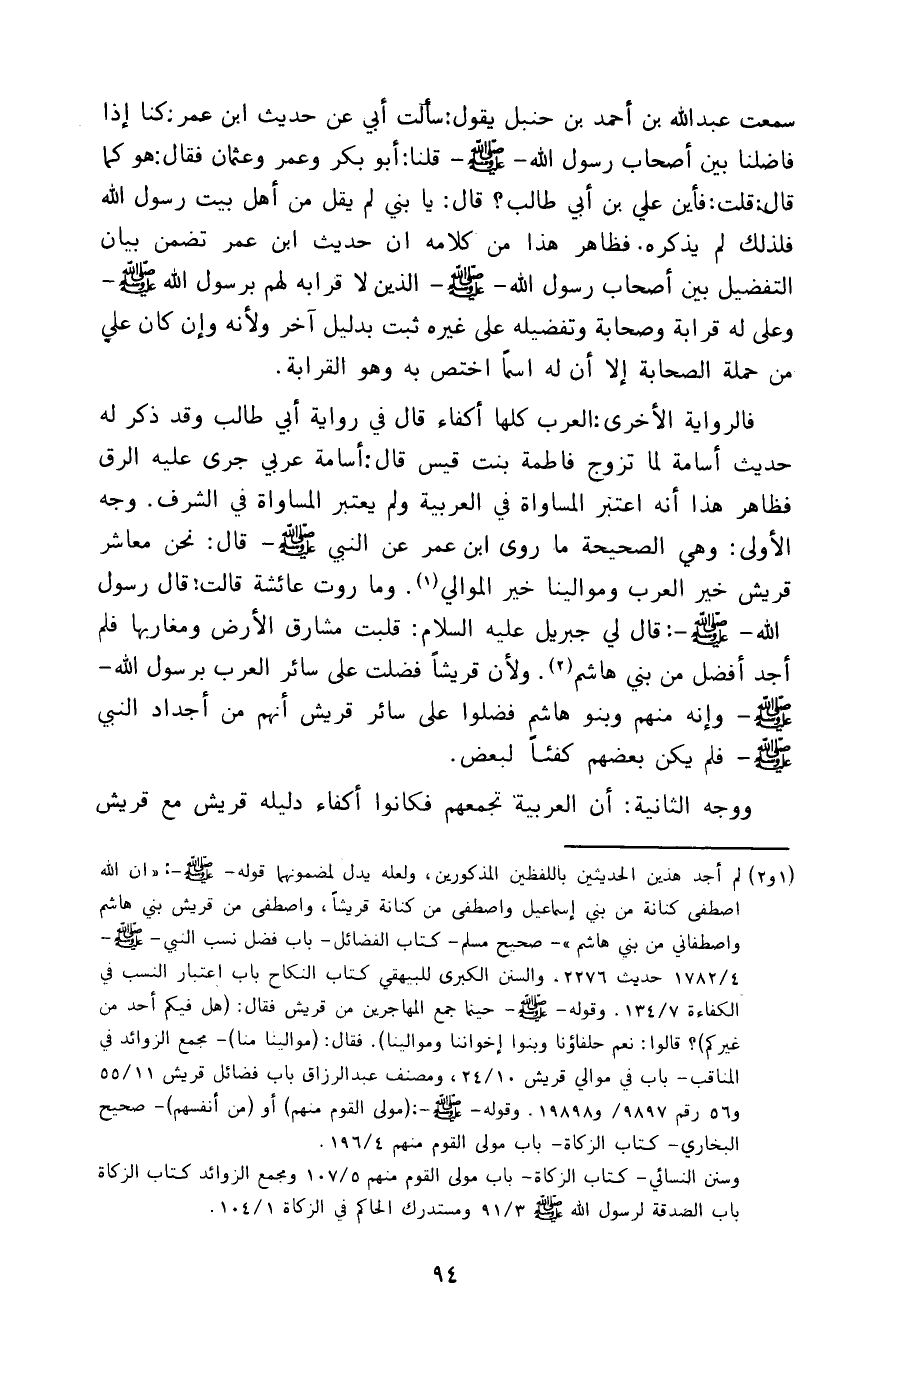 سمعت عبدالله بن أحمد بن حنبل يقول:سألت أبي عن حديث ابن عمر:كنا إذا
فاضلنا بين أصحاب رسول الله- ﷺ- قلنا:أبو بكر وعمر وعثمان فقال:هو كما
قال:قلت:فأين علي بن أبي طالب؟ قال: يا بني لم يقل من أهل بيت رسول الله
فلذلك لم يذكره. فظاهر هذا من كلامه ان حديث ابن عمر تضمن بيان
التفضيل بين أصحاب رسول الله- ﷺ- الذين لا قرابه لهم برسول الله ﷺ-
وعلى له قرابة وصحابة وتفضيله على غيره ثبت بدليل آخر ولأنه وإن كان علي
من حملة الصحابة إلا أن له اسماً اختص به وهو القرابة.
فالرواية الأخرى:العرب كلها أكفاء قال في رواية أبي طالب وقد ذكر له
حديث أسامة لما تزوج فاطمة بنت قيس قال:أسامة عربي جرى عليه الرق
فظاهر هذا أنه اعتبر المساواة في العربية ولم يعتبر المساواة في الشرف. وجه
الأولى: وهي الصحيحة ما روى ابن عمر عن النبي ﷺ- قال: نحن معاشر
قريش خير العرب وموالينا خير الموالي(١). وما روت عائشة قالت: قال رسول
الله- ﷺ-: قال لي جبريل عليه السلام: قلبت مشارق الأرض ومغاربها فلم
أجد أفضل من بني هاشم(٢). ولأن قريشاً فضلت على سائر العرب برسول الله-
ﷺ- وإنه منهم وبنو هاشم فضلوا على سائر قريش أنهم من أجداد النبي
ﷺ- فلم يكن بعضهم كفئاً لبعض.
ووجه الثانية: أن العربية تجمعهم فكانوا أكفاء دليله قريش مع قريش
(١و٢) لم أجد هذين الحديثين باللفظين المذكورين، ولعله يدل لمضمونها قوله- ﷺ-: «ان الله
اصطفى كنانة من بني إسماعيل واصطفى من كنانة قريشاً، واصطفى من قريش بني هاشم
واصطفاني من بني هاشم»- صحيح مسلم- كتاب الفضائل- باب فضل نسب النبي- ﷺ-
١٧٨٢/٤ حديث ٢٢٧٦. والسنن الكبرى للبيهقي كتاب النكاح باب اعتبار النسب في
الكفاءة ١٣٤/٧. وقوله- ﷺ- حينما جمع المهاجرين من قريش فقال: (هل فيكم أحد من
غيركم)؟ قالوا: نعم حلفاؤنا وبنوا إخواننا وموالينا). فقال: (موالينا منا)- مجمع الزوائد في
المناقب- باب في موالي قريش ٢٤/١٠، ومصنف عبدالرزاق باب فضائل قريش ٥٥/١١
و٥٦ رقم ٩٨٩٧/ و١٩٨٩٨. وقوله- ﷺ-:(مولى القوم منهم) أو (من أنفسهم)- صحيح
البخاري- كتاب الزكاة- باب مولى القوم منهم ١٩٦/٤.
وسنن النسائي- كتاب الزكاة- باب مولى القوم منهم ١٠٧/٥ ومجمع الزوائد كتاب الزكاة
باب الصدقة لرسول الله ﷺ ٩١/٣ ومستدرك الحاكم في الزكاة ١٠٤/١.
٩٤